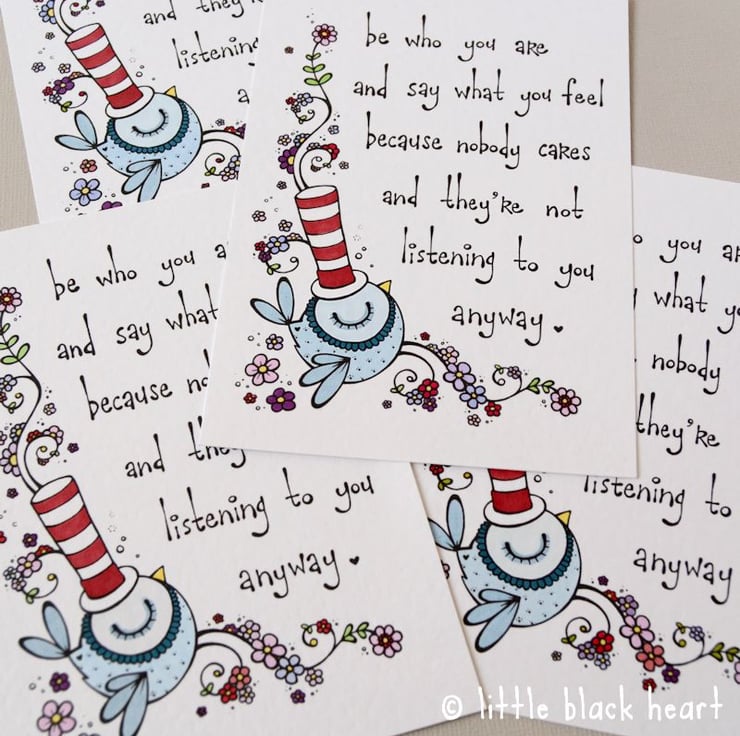 and they
listening
a
be who you are
and say what you feel
because nobody cares
and they're not
listening to you
anyway
be who you a
and say what
because no
and they
listening to you
anyway
o you ar
what y
nobody
they're
listening to
anyway
© little black heart